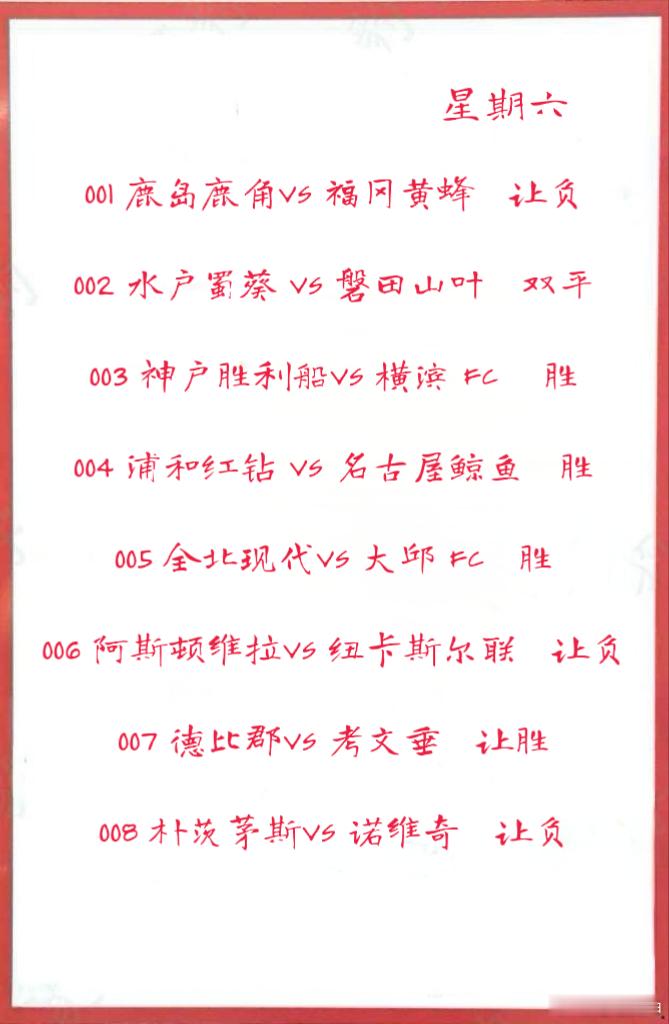 星期六
001 鹿岛鹿角VS 福冈黄蜂 让负
002 水户蜀葵 VS 磐田山叶 双平
003 神户胜利船VS 横滨 FC 胜
004 浦和红钻 VS 名古屋鲸鱼 胜
005 全北现代VS 大邱 FC 胜
006 阿斯顿维拉VS 纽卡斯尔联 让负
007 德比郡VS 考文垂 让胜
008 朴茨茅斯VS 诺维奇 让负